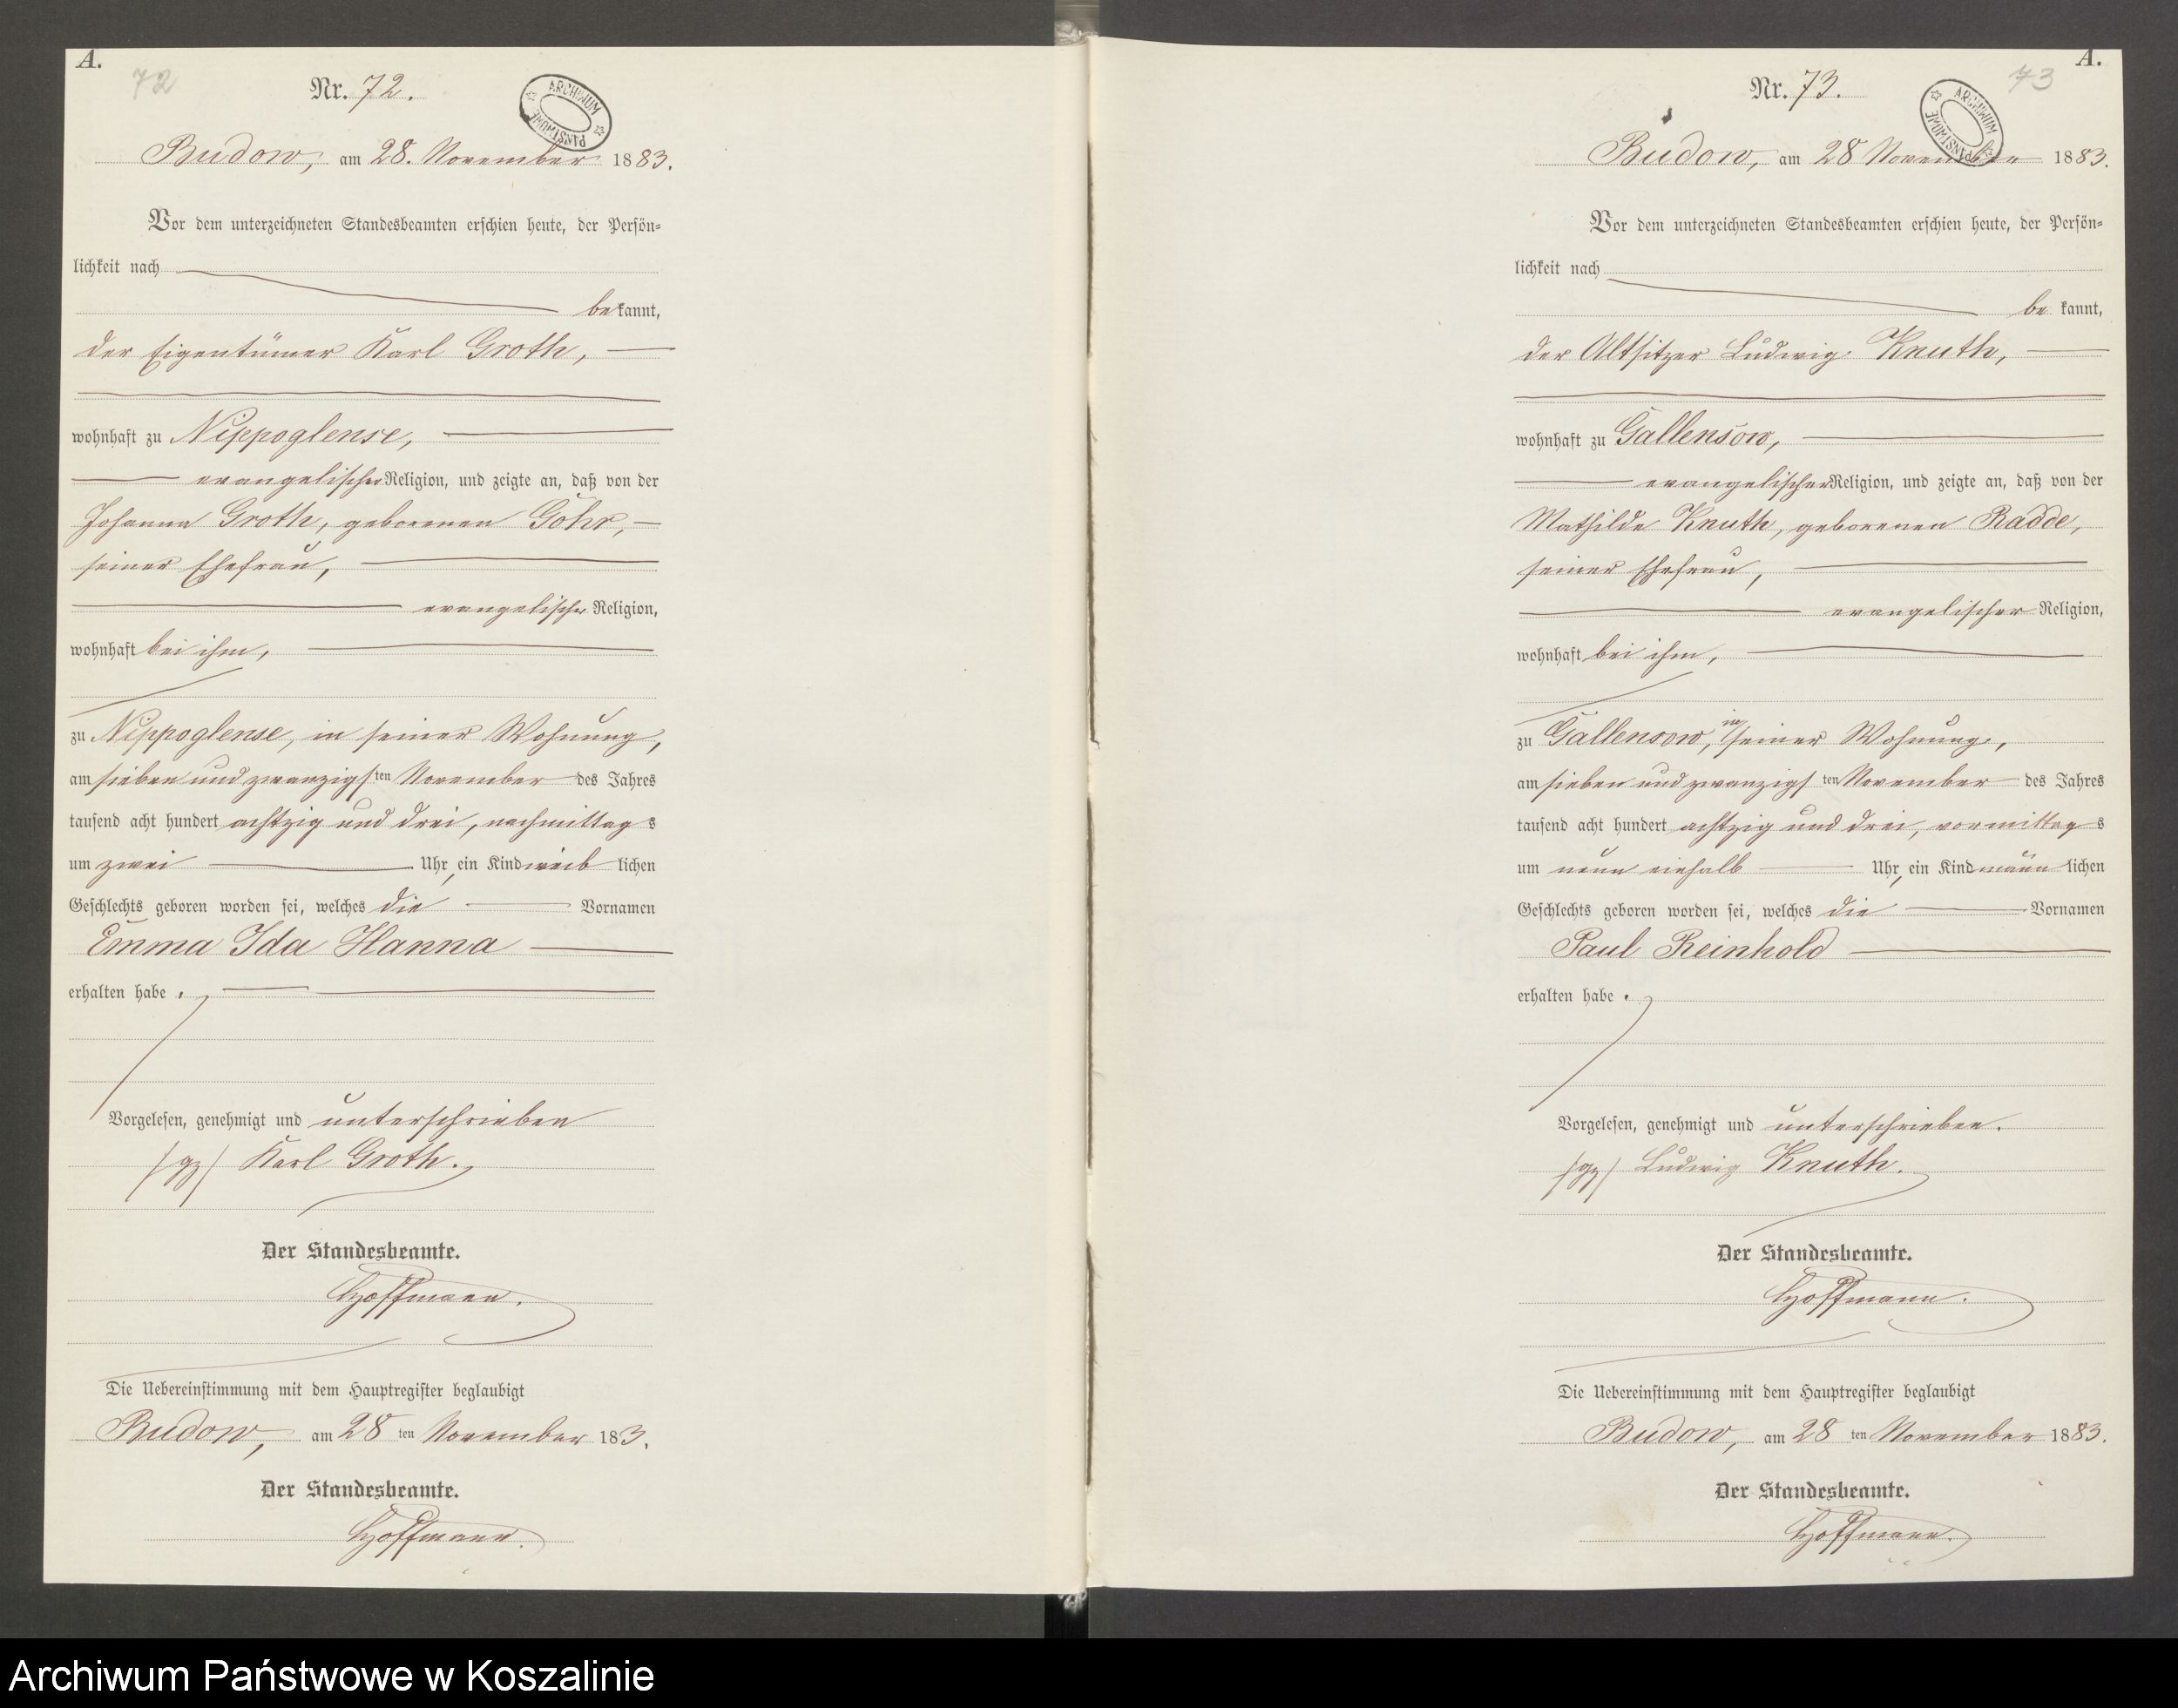 A.
72
Nr. 72.
ARCHIWUM PAŃSTWOWE
Budow, am 28. November 1883.
Vor dem unterzeichneten Standesbeamten erschien heute, der Persön-
lichkeit nach
bekannt,
der Eigentümer Karl Groth,
wohnhaft zu Nippoglense,
evangelischer Religion, und zeigte an, daß von der
Johanna Groth, geborenen Gohr,
seiner Ehefrau,
evangelischer Religion,
wohnhaft bei ihm,
zu Nippoglense, in seiner Wohnung,
am sieben und zwanzigsten November des Jahres
tausend acht hundert achtzig und drei, nachmittags
um zwei Uhr, ein Kind weiblichen
Geschlechts geboren worden sei, welches die Vornamen
Emma Ida Hanna
erhalten habe.
Vorgelesen, genehmigt und unterschrieben
/gz/ Karl Groth.
Der Standesbeamte.
Hoffmann.
Die Uebereinstimmung mit dem Hauptregister beglaubigt
Budow, am 28 ten November 183.
Der Standesbeamte.
Hoffmann.
A.
73
Nr. 73.
ARCHIWUM PAŃSTWOWE
Budow, am 28 November 1883.
Vor dem unterzeichneten Standesbeamten erschien heute, der Persön-
lichkeit nach
bekannt,
der Altsitzer Ludwig Knuth,
wohnhaft zu Gallensow,
evangelischer Religion, und zeigte an, daß von der
Mathilde Knuth, geborenen Radde,
seiner Ehefrau,
evangelischer Religion,
wohnhaft bei ihm,
zu Gallensow, in seiner Wohnung,
am sieben und zwanzigsten November des Jahres
tausend acht hundert achtzig und drei, vormittags
um neun einhalb Uhr, ein Kind männlichen
Geschlechts geboren worden sei, welches die Vornamen
Paul Reinhold
erhalten habe.
Vorgelesen, genehmigt und unterschrieben.
/gz/ Ludwig Knuth.
Der Standesbeamte.
Hoffmann.
Die Uebereinstimmung mit dem Hauptregister beglaubigt
Budow, am 28 ten November 1883.
Der Standesbeamte.
Hoffmann.
Archiwum Państwowe w Koszalinie